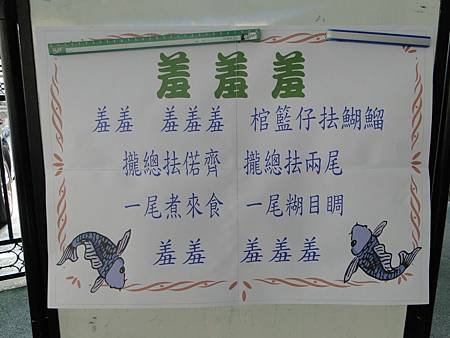 羞羞羞
羞羞 羞羞羞 棺籃仔抾鰗鰡
攏總抾偌齊 攏總抾兩尾
一尾煮來食 一尾糊目睭
羞羞 羞羞羞